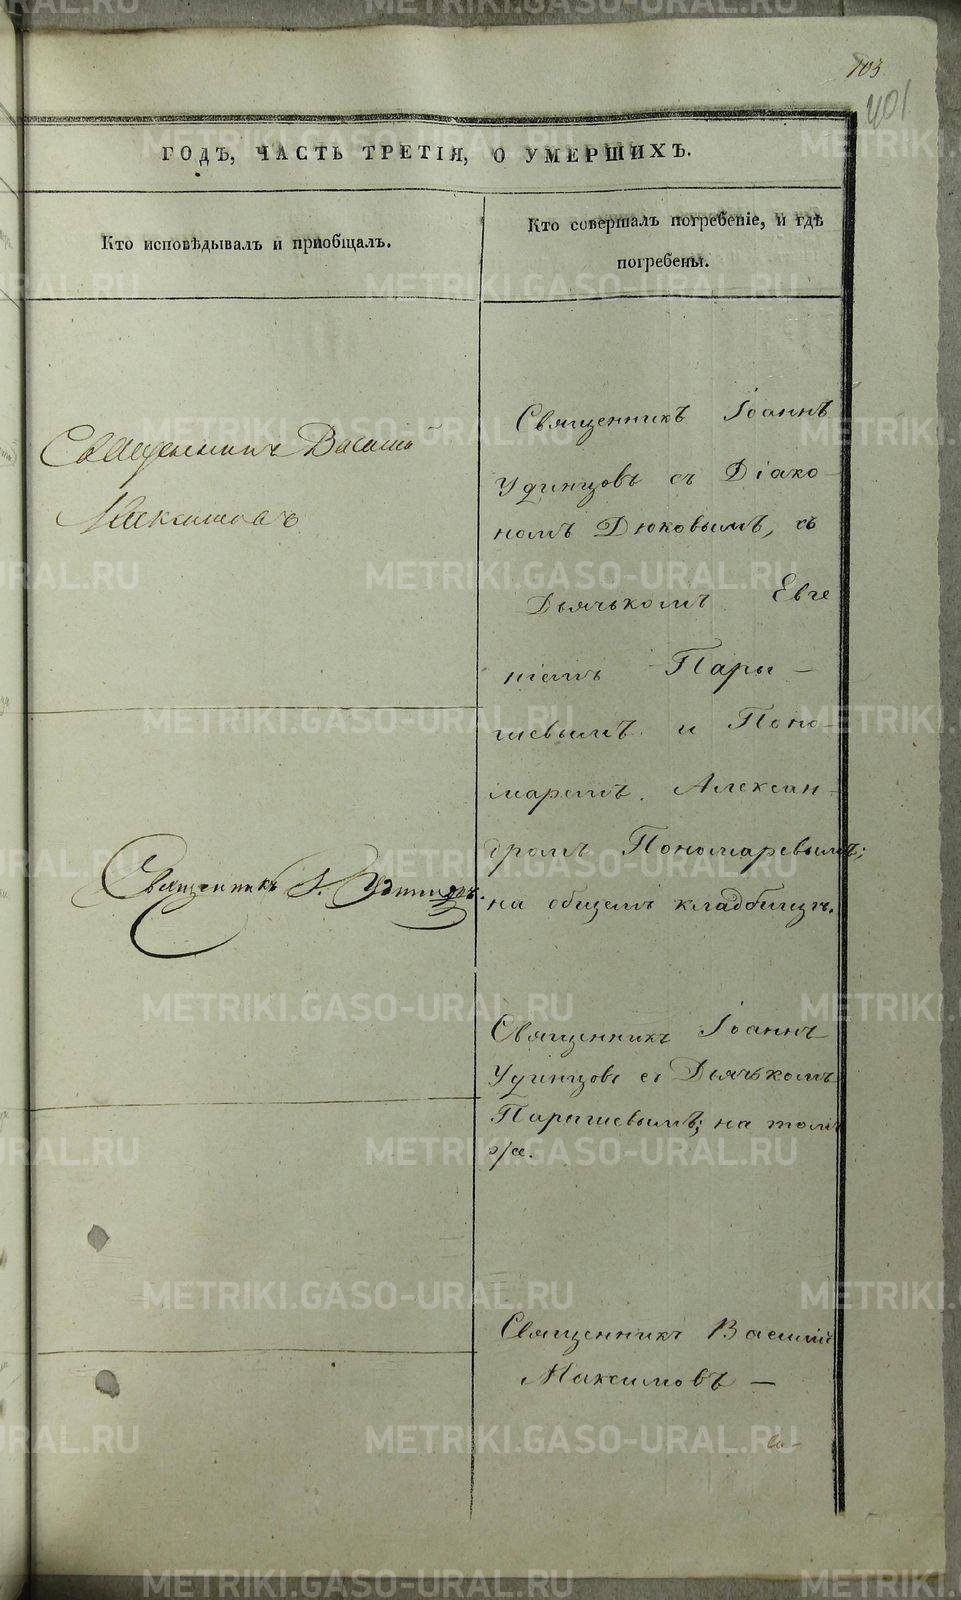 103
401
ГОДЪ, ЧАСТЬ ТРЕТІЯ, О УМЕРШИХЪ.
Кто исповѣдывалъ и пріобщалъ.
Кто совершалъ погребеніе, и гдѣ
погребены.
Священникъ Василій
Максимовъ
Священникъ І. Удинцовъ.
Священникъ Іоаннъ
Удинцовъ съ Діако-
номъ Дюковымъ, съ
Дьячькомъ Евге
ніемъ Пары-
шевымъ и Поно-
маремъ Алексан-
дромъ Пономаревымъ;
на общемъ кладбищѣ.
Священникъ Іоаннъ
Удинцовъ съ Дьячькомъ
Парышевымъ; на томъ
же.
Священникъ Василій
Максимовъ —
METRIKI.GASO-URAL.RU